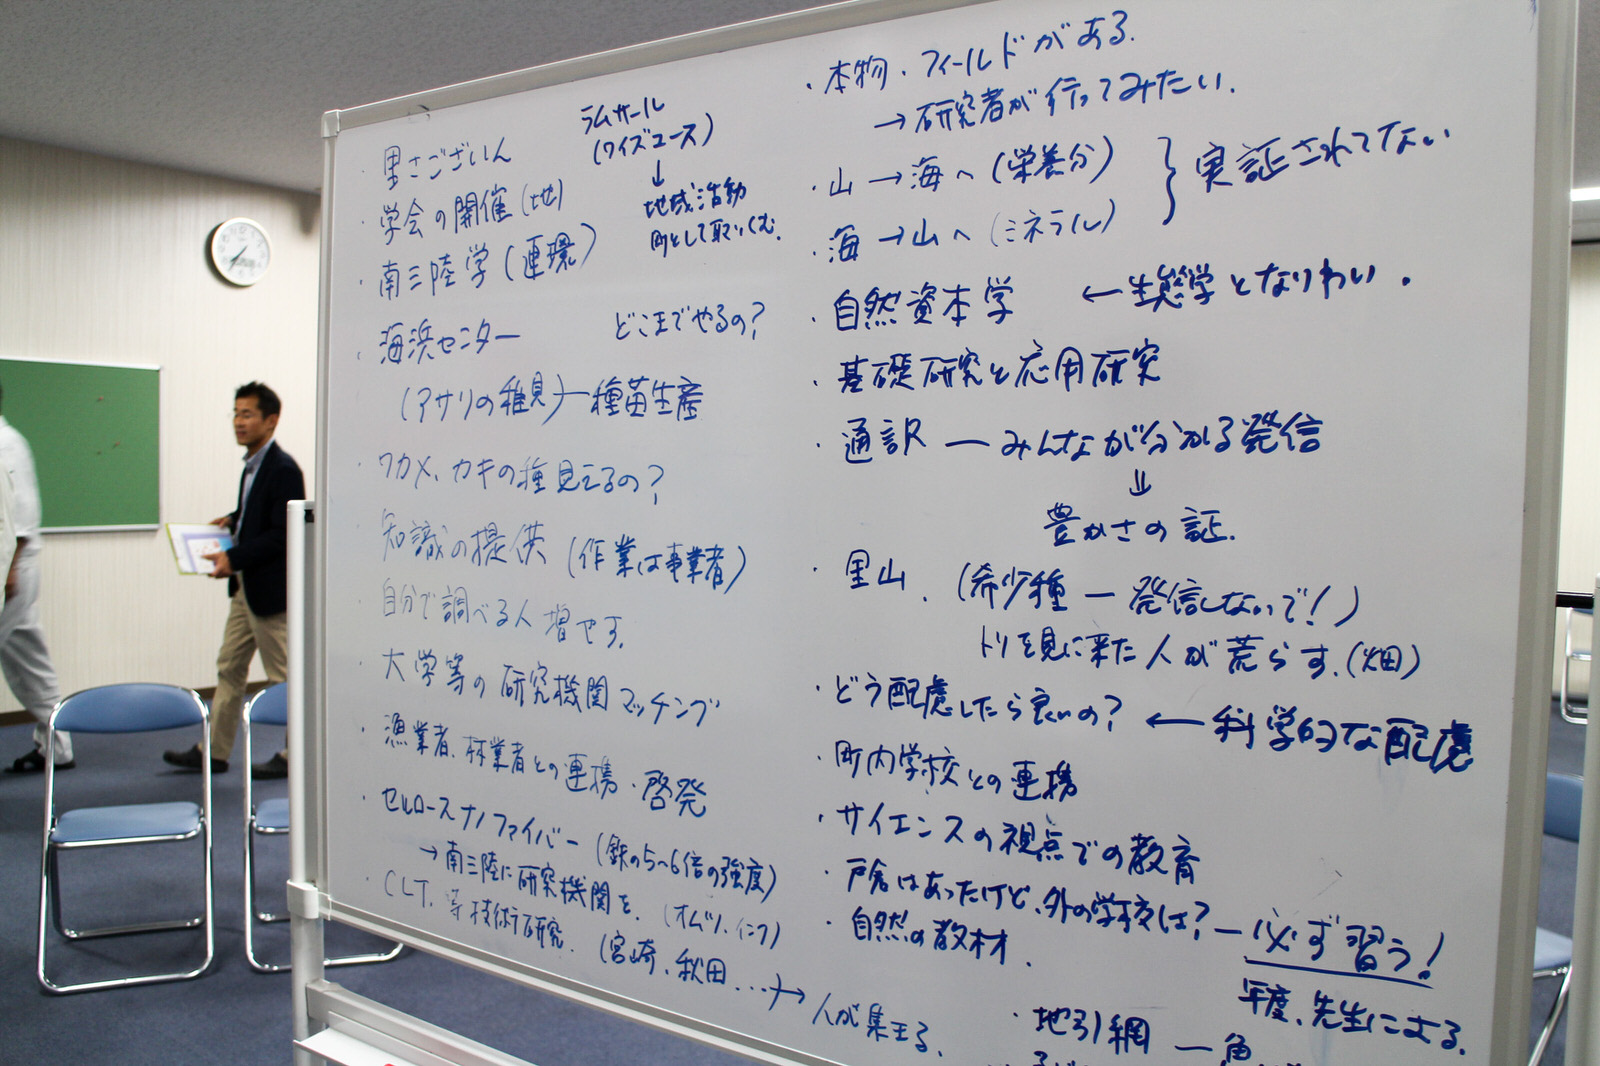 ・里さございん
ラムサール
(ワイズユース)
↓
地域活動
町として取りくむ.
・学会の開催(地)
・南三陸学(連環)
・海浜センター
どこまでやるの?
(アサリの稚貝)―種苗生産
・ワカメ、カキの種見えるの?
・知識の提供(作業は事業者)
・自分で調べる人増やす.
・大学等の研究機関マッチング
・漁業者、林業者との連携・啓発
・セルロースナノファイバー(鉄の5~6倍の強度)
→南三陸に研究機関を. (オムツ、インク)
・CLT.等技術研究. (宮崎、秋田...)→人が集まる.
・本物・フィールドがある.
→研究者が行ってみたい.
・山→海へ(栄養分)
・海→山へ(ミネラル)
}実証されてない
・自然資本学 ←生態学となりわい.
・基礎研究と応用研究
・通訳―みんなが分かる発信
⇓
豊かさの証.
・里山.(希少種―発信しないで!)
トリを見に来た人が荒らす.(畑)
・どう配慮したら良いの?←科学的な配慮
・町内学校との連携
・サイエンスの視点での教育
・戸倉はあったけど、外の学校は?―必ず習う!
年度、先生による.
・自然の教材.
・地引網―魚